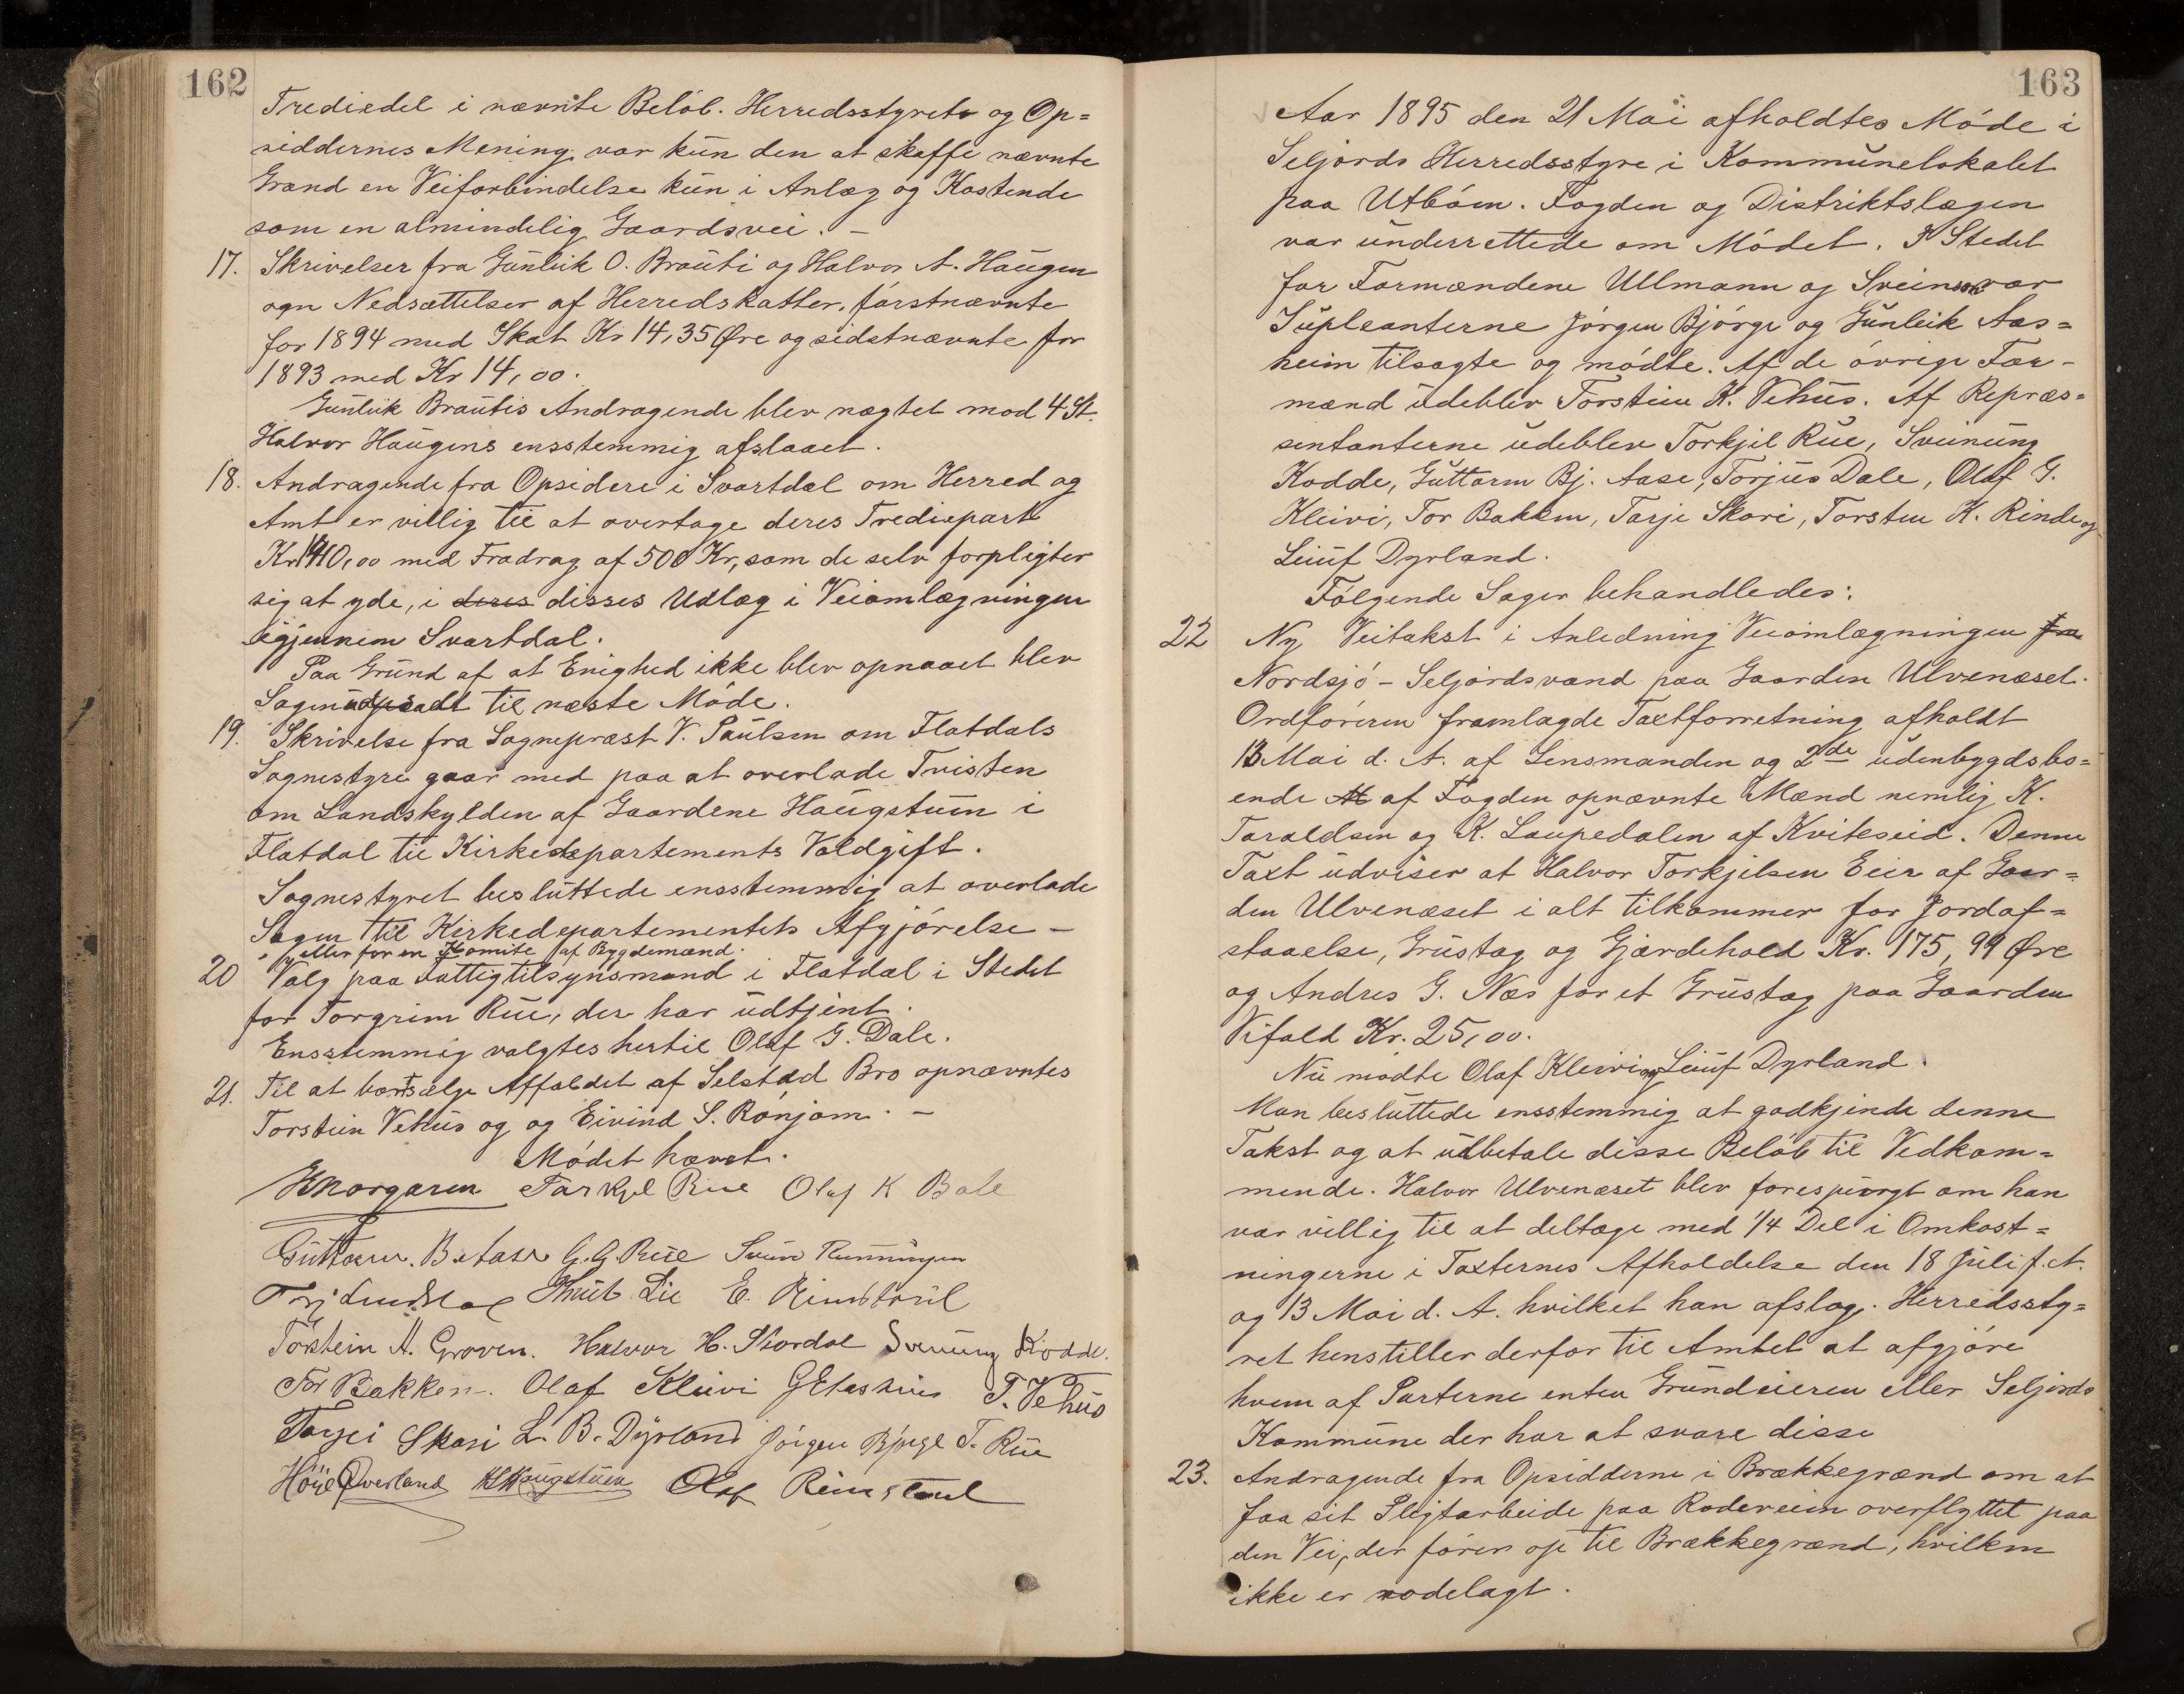 162
Trediedel i nævnte Beløb. Herredsstyrets og Op=
siddernes Mening var kun den at skaffe nævnte
Grænd en Veiforbindelse kun i Anlæg og Kostende
som en almindelig Gaardsvei. –
17. Skrivelser fra Gunleik O. Brauti og Halvor A. Haugen
ogn Nedsættelser af Herredskatter, førstnævnte
for 1894 med Skat Kr 14,35 Øre og sidstnævnte for
1893 med Kr 14,00.
Gunleik Brautis Andragende blev nægtet mod 4 St.
Halvor Haugens ensstemmig afslaaet.
18. Andragende fra Opsidere i Svartdal om Herred og
Amt er villig til at overtage deres Trediepart
Kr 1410,00 med Fradrag af 500 Kr, som de selv forpligter
sig at yde, i deres disses Udlæg i Veiomlægningen
igjennem Svartdal.
Paa Grund af at Enighed ikke blev opnaaet blev
Sagen udsadt til næste Møde.
19. Skrivelse fra Sognepræst V. Paulsen om Flatdals
Sognestyre gaar med paa at overlade Tvisten
om Landskylden af Gaardene Haugstuin i
Flatdal til Kirkedepartements Voldgift.
Sognestyret besluttede ensstemmig at overlade
Sagen til Kirkedepartementets Afgjørelse –
eller for en Komite af Bygdemænd.
20 Valg paa Fattigtilsynsmand i Flatdal i Stedet
for Torgrim Rue, der har udtjent.
Ensstemmig valgtes hertil Olaf G. Dale.
21. Til at bortsælge Affaldet af Selstad Bro opnævntes
Torstein Vehus og og Eivind S. Rønjom. –
Mødet hævet.
H Norgaren Tarkjel Rue Olaf K Bale
Guttorm. B. Aase G. G. Rue Svein Runningen
Knut Lie E. Rimstvul
Torstein A. Groven. Halvor H. Skordal Sveinung Kodde.
Tor Bakken. Olaf Kleivi G Aasheim T. Vehus
Tarjei Skori L. B. Dyrland Jørgen Bjørge T. Rue
Høye Øverland H Haugstuen Olaf Rimstvul
163
Aar 1895 den 21 Mai afholdtes Møde i
Seljords Herredsstyre i Kommunelokalet
paa Utbøen. Fogden og Distriktslægen
var underrettede om Mødet. I Stedet
for Formændene Ullmann og Sveinson var
Supleanterne Jørgen Bjørge og Gunleik Aas=
heim tilsagte og mødte. Af de øvrige For-
mænd udeblev Torstein K. Vehus. Af Repræs=
sentanterne udeblev Torkjil Rue, Sveinung
Kodde, Guttorm Bj. Aase, Torjus Dale, Olaf G.
Kleivi, Tor Bakken, Tarje Skori, Torsten K. Rinde og
Leiuf Dyrland.
Følgende Sager behandledes:
22 Ny Veitakst i Anledning Veiomlægningen fra
Nordsjø – Seljordsvand paa Gaarden Ulvenæset.
Ordføreren framlagde Taxtforretning afholdt
13 Mai d. A. af Lensmanden og 2de udenbygdsbo=
ende M af Fogden opnævnte Mænd nemlig K.
Taraldsen og K. Laupedalen af Kviteseid. Denne
Taxt udviser at Halvor Torkjilsen Eier af Gaar=
den Ulvenæset i alt tilkommer for Jordaf=
staaelse, Grustag og Gjærdehold Kr. 175,99 Øre
og Andres G. Næs for et Grustag paa Gaarden
Vifald Kr. 25,00.
Nu mødte Olaf Kleivi og Leiuf Dyrland.
Man besluttede ensstemmig at godkjende denne
Takst og at udbetale disse Beløb til Vedkom=
mende. Halvor Ulvenæset blev forespurgt om han
var villig til at deltage med 1/4 Del i Omkost=
ningerne i Taxternes Afholdelse den 18 Juli f. A.
og 13 Mai d. A. hvilket han afslog. Herredssty=
ret henstiller derfor til Amtet at afgjøre
hvem af Parterne enten Grundeieren eller Seljords
Kommune der har at svare disse
23. Andragende fra Opsidderne i Brækkegrænd om at
faa sit Pligtarbeide paa Rodeveien overflyttet paa
den Vei, der fører op til Brækkegrænd, hvilken
ikke er rodelagt.